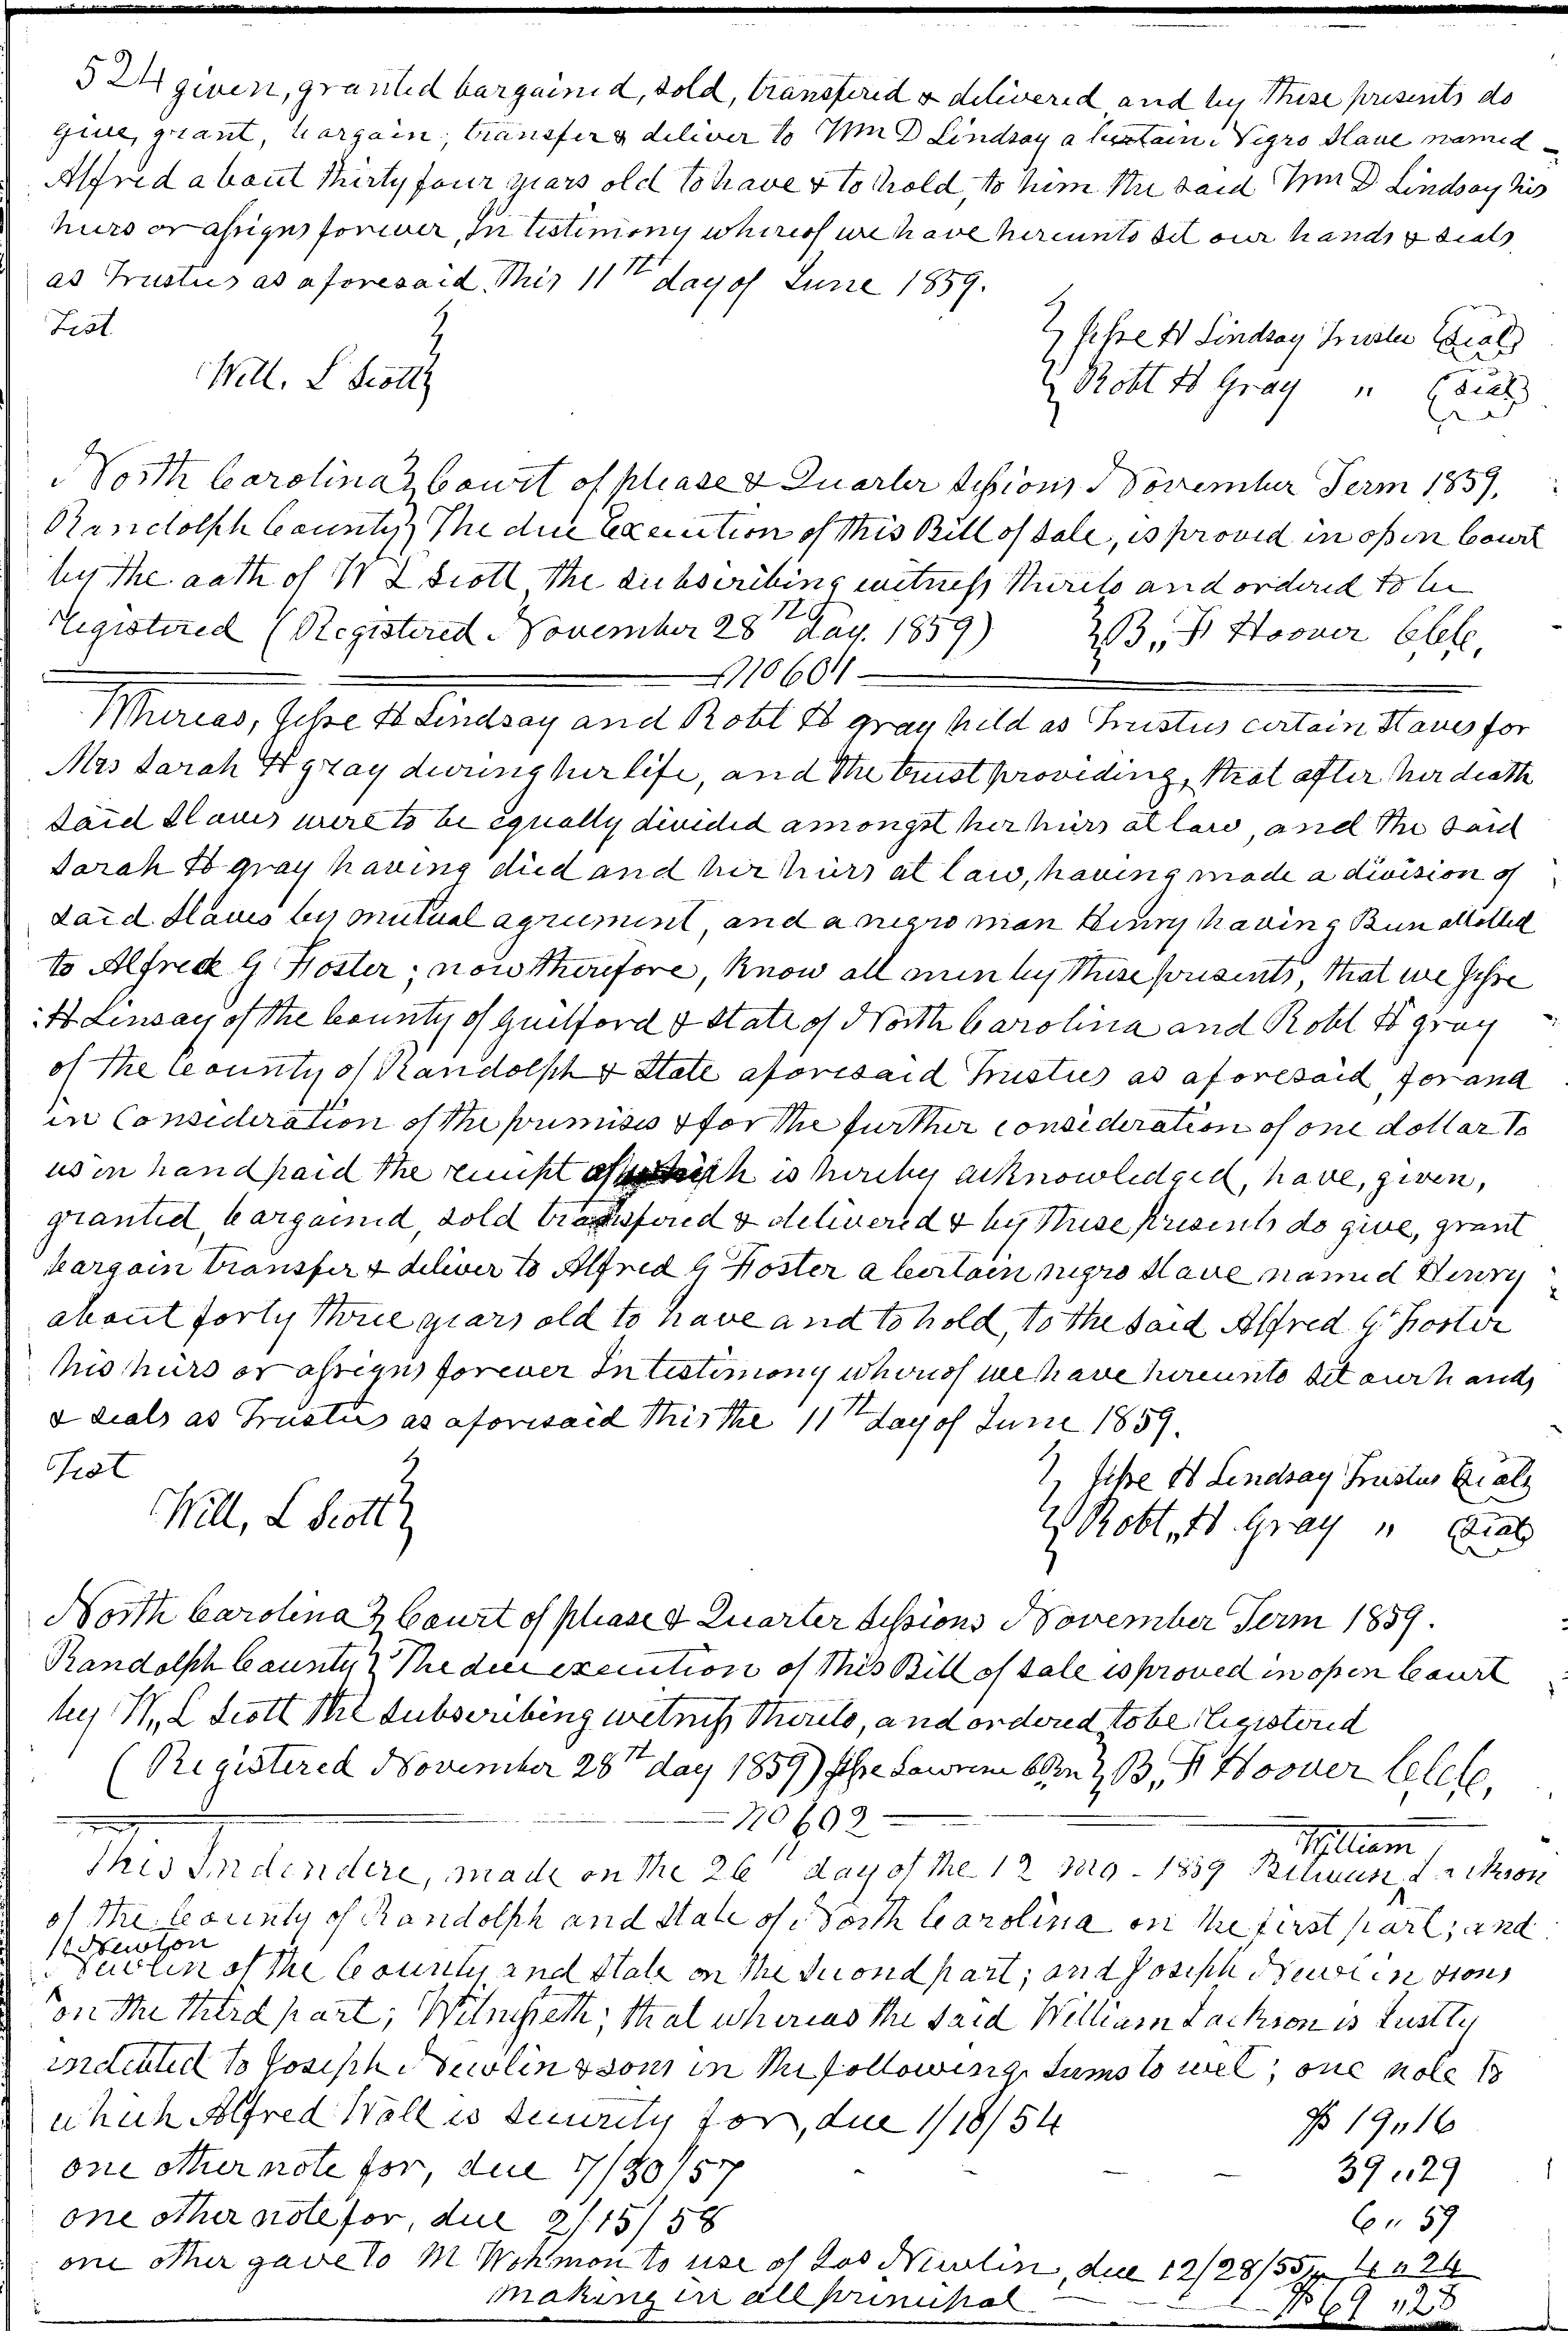 524 given, granted bargained, sold, transfered & delivered and by These presents do
give, grant, bargain, transfer & deliver to Wm D Lindsay a certain Negro Slave named
Alfred about Thirty four years old to have & to hold, to him the said Wm D Lindsay his
heirs or assigns forever, In testimony whereof we have hereunto set our hands & seals
as Trustees as aforesaid, This 11th day of June 1859.
Test
Jesse H Lindsay Trustee (Seal)
Will. L Scott
Robt H Gray " (Seal)
North Carolina Court of please & Quarter Sessions November Term 1859.
Randolph County The due Execution of this Bill of Sale, is proved in open Court
by the oath of W L Scott the subscribing witness thereto and ordered to be
registered (Registered November 28th day. 1859) B,, F Hoover Clk.
No 601
Whereas, Jesse H Lindsay and Robt H gray held as Trustees certain Slaves for
Mrs Sarah H gray during her life, and the trust providing, that after her death
said slaves were to be equally divided amongst her heirs at law, and the said
Sarah H gray having died and her heirs at law, having made a division of
said Slaves by mutual agreement, and a negro man Henry having Been allotted
to Alfred G Foster; now therefore, know all men by these presents, that we Jesse
H Linsay of the County of Guilford & State of North Carolina and Robt H gray
of the County of Randolph & State aforesaid Trustees as aforesaid, for and
in Consideration of the premises & for the further consideration of one dollar to
us in hand paid the receipt of which is hereby acknowledged, have, given,
granted, bargained, sold transfered & delivered & by these presents do give, grant
bargain transfer & deliver to Alfred G Foster a certain negro slave named Henry
about forty three years old to have and to hold, to the said Alfred G. Foster
his heirs or assigns forever In testimony whereof we have hereunto set our hands
& seals as Trustees as aforesaid this the 11th day of June 1859.
Test
Jesse H Lindsay Trustee (Seal)
Will, L Scott
Robt,, H Gray " (Seal)
North Carolina Court of please & Quarter Sessions November Term 1859.
Randolph County The due execution of this Bill of sale is proved in open Court
by W,, L Scott the subscribing witness thereto, and ordered to be registered
(Registered November 28th day 1859) B,, F Hoover Clk,
No 602
William
This Indendere, made on the 26th day of the 12 mo - 1859 Between Jackson
of the County of Randolph and State of North Carolina on the first part; and
Newton
Newlin of the County and State on the second part; and Joseph Newlin & sons
on the third part; Witnesseth; that whereas the said William Jackson is Justly
indebted to Joseph Newlin & sons in the following sums to wit; one note to
which Alfred Wall is security for, due 1/18/54 $ 19,,16
one other note for, due 7/30/57 39,,29
one other note for, due 2/15/58 6,, 59
one other gave to M to use of Jos Newlin, due 12/28/55 4,, 24
making in all principal $ 69,,28